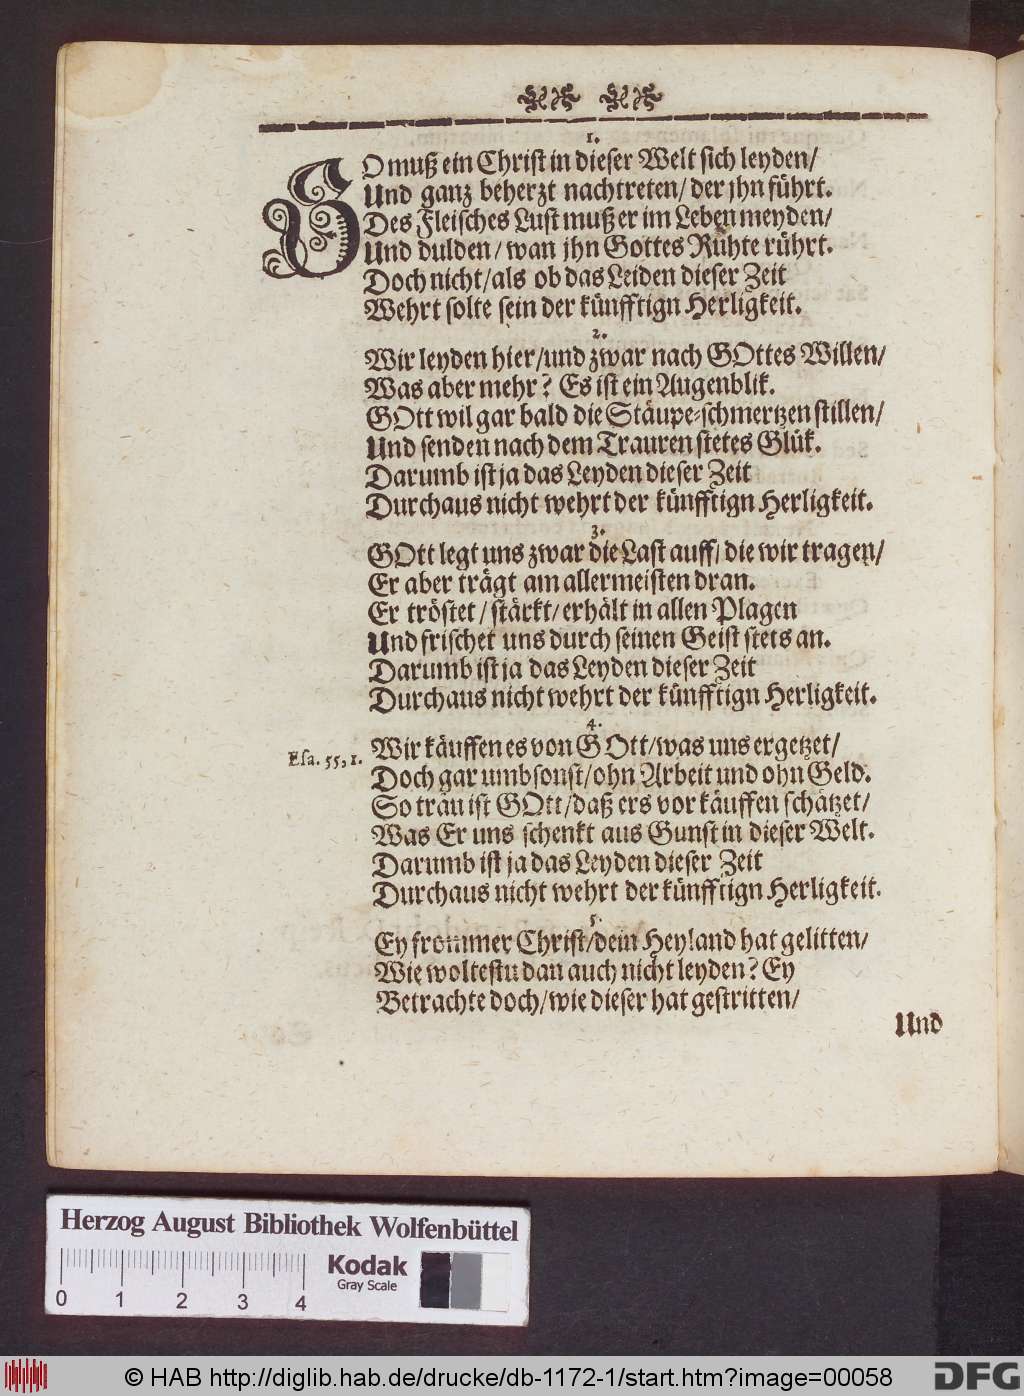 1.
SO muß ein Christ in dieser Welt sich leyden/
Und ganz beherzt nachtreten/ der jhn führt.
Des Fleisches Lust muß er im Leben meyden/
Und dulden/ wan jhn Gottes Rühte rührt.
Doch nicht/ als ob das Leiden dieser Zeit
Wehrt solte sein der künfftign Herligkeit.
2.
Wir leyden hier/ und zwar nach GOttes Willen/
Was aber mehr? Es ist ein Augenblik.
GOtt wil gar bald die Stäupe-schmertzen stillen/
Und senden nach dem Trauren stetes Glük.
Darumb ist ja das Leyden dieser Zeit
Durchaus nicht wehrt der künfftign Herligkeit.
3.
GOtt legt uns zwar die Last auff/ die wir tragen/
Er aber trägt am allermeisten dran.
Er tröstet/ stärkt/ erhält in allen Plagen
Und frischet uns durch seinen Geist stets an.
Darumb ist ja das Leyden dieser Zeit
Durchaus nicht wehrt der künfftign Herligkeit.
4.
Esa. 55, 1.
Wir käuffen es von GOtt/ was uns ergetzet/
Doch gar umbsonst/ ohn Arbeit und ohn Geld.
So träu ist GOtt/ daß ers vor käuffen schätzet/
Was Er uns schenkt aus Gunst in dieser Welt.
Darumb ist ja das Leyden dieser Zeit
Durchaus nicht wehrt der künfftign Herligkeit.
5.
Ey frommer Christ/ dein Heyland hat gelitten/
Wie woltestu dan auch nicht leyden? Ey
Betrachte doch/ wie dieser hat gestritten/
Und
Herzog August Bibliothek Wolfenbüttel
Kodak
Gray Scale
0 1 2 3 4
© HAB http://diglib.hab.de/drucke/db-1172-1/start.htm?image=00058
DFG